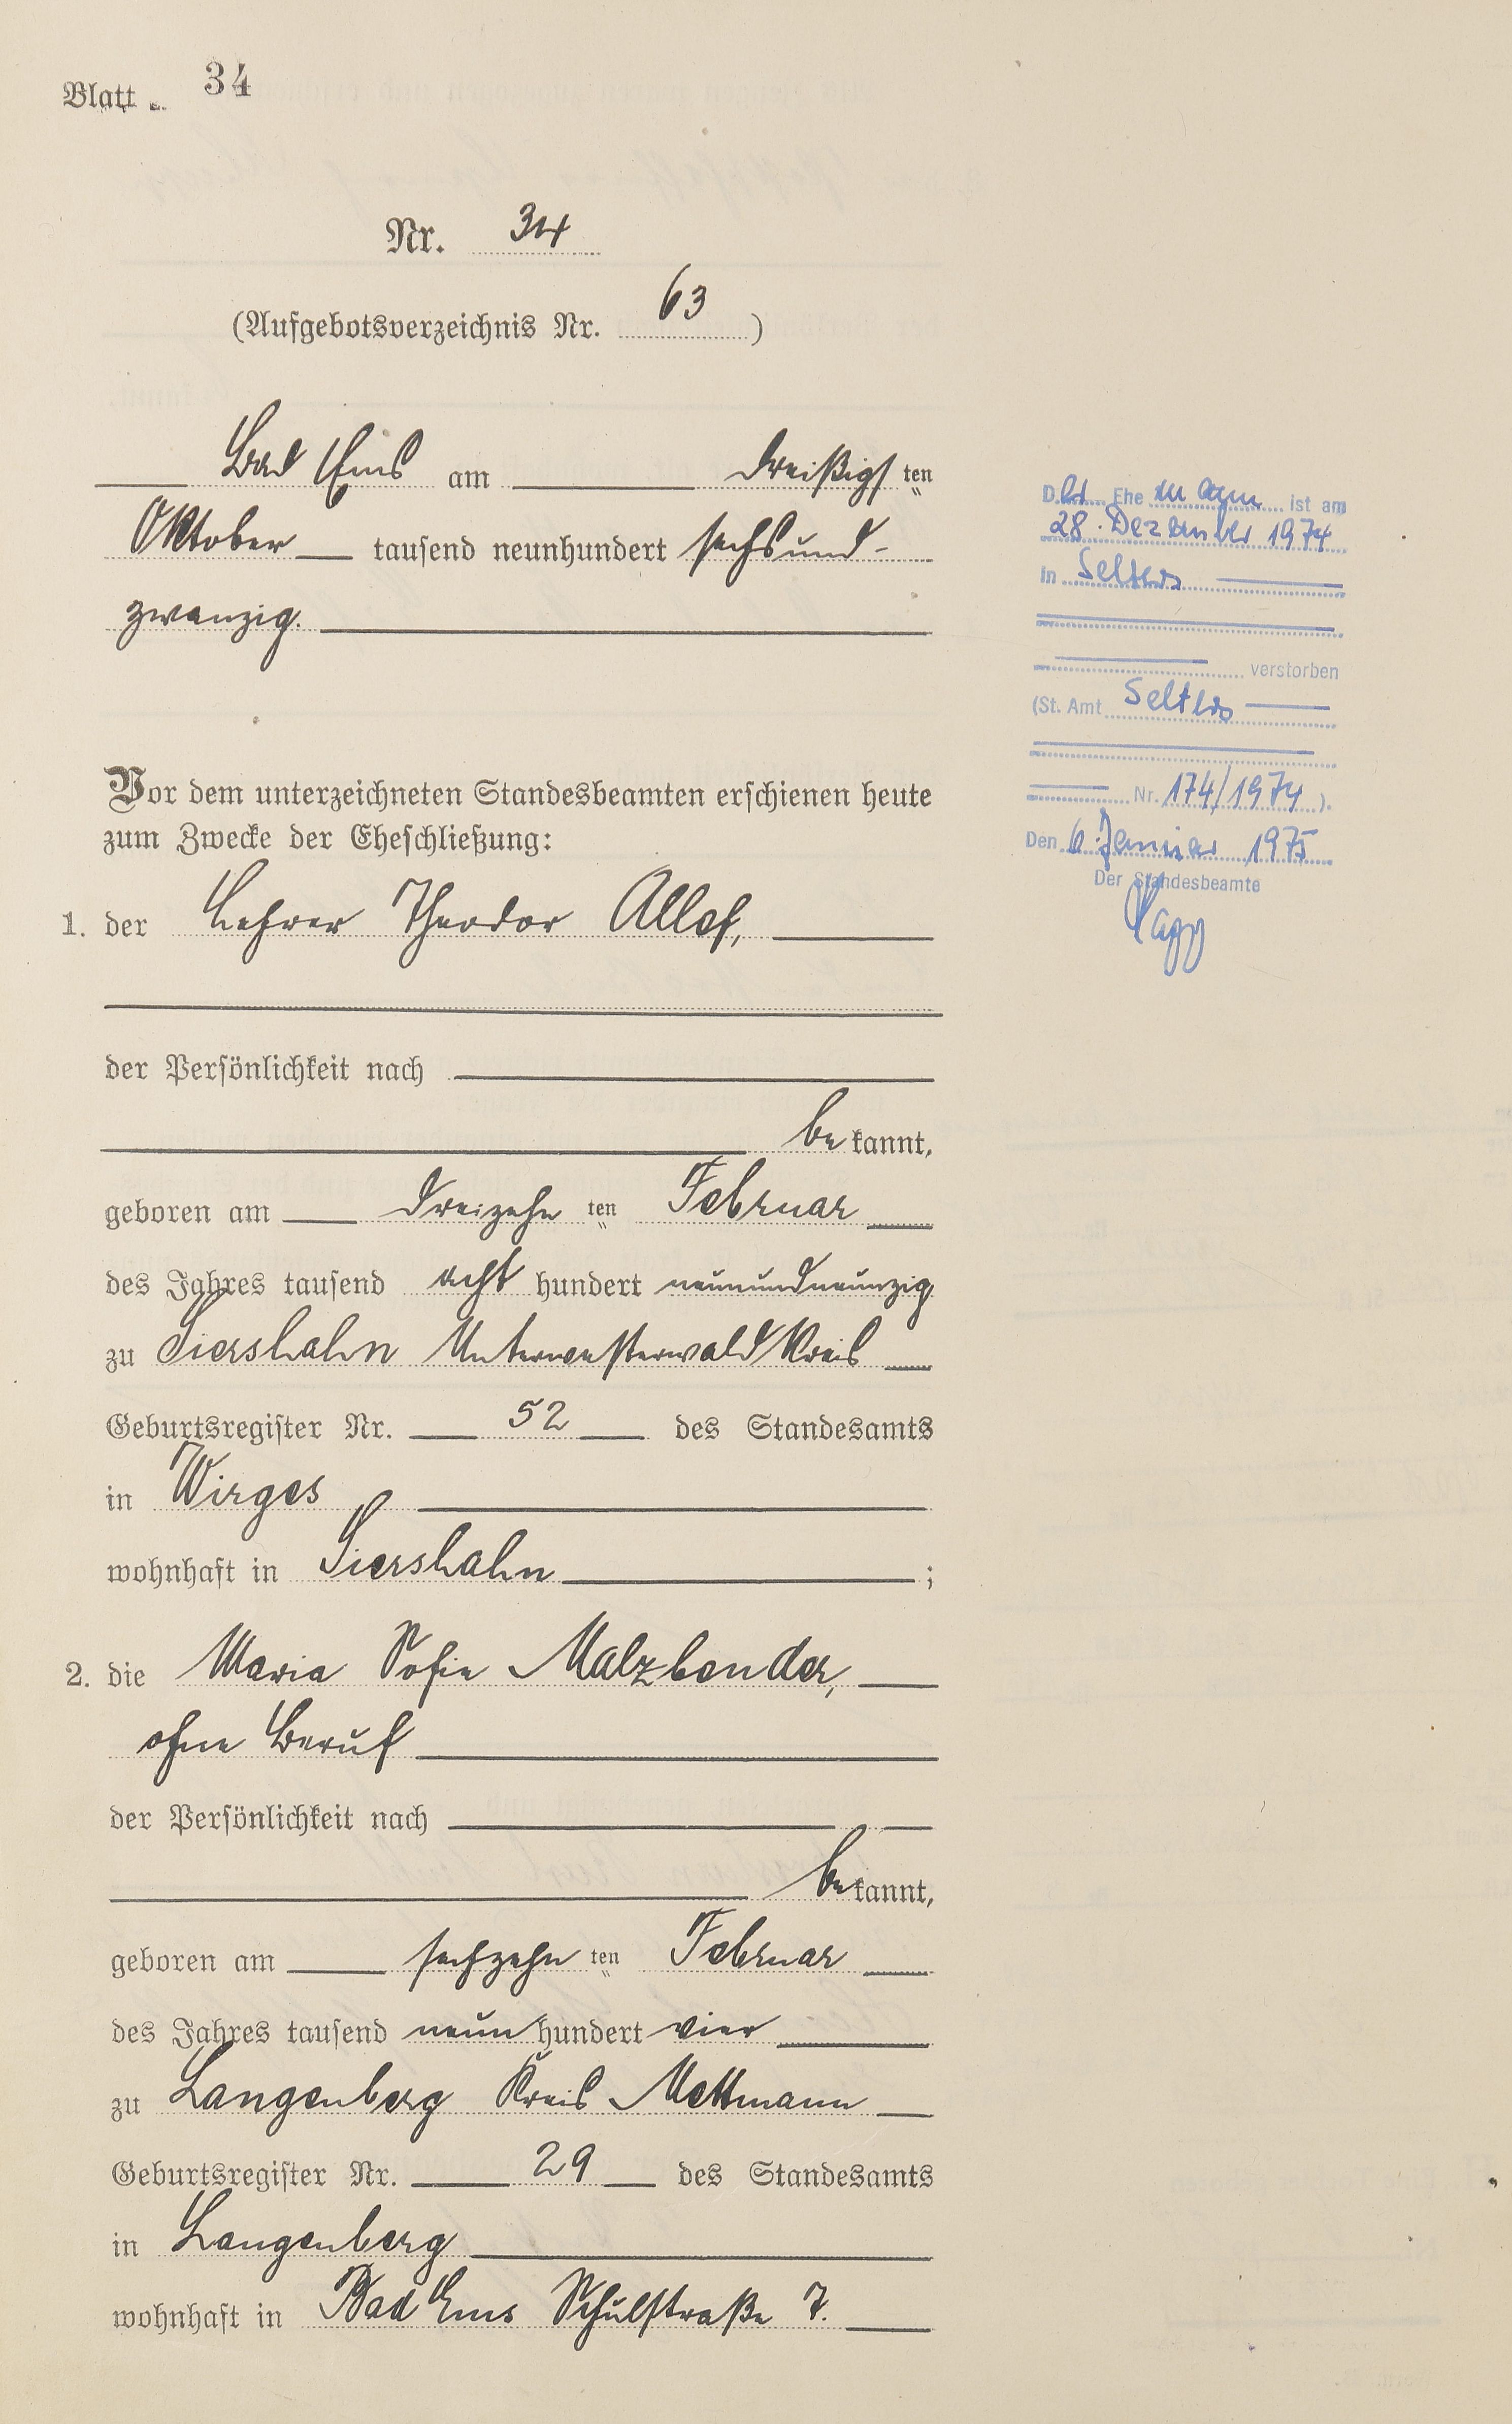 Blatt 34
Nr. 34
(Aufgebotsverzeichnis Nr. 63)
Bad Ems am dreißigsten
Oktober tausend neunhundert sechsund-
zwanzig.
Vor dem unterzeichneten Standesbeamten erschienen heute
zum Zwecke der Eheschließung:
1. der Lehrer Theodor Allef,
der Persönlichkeit nach
bekannt,
geboren am dreizehnten Februar
des Jahres tausend acht hundert neunundneunzig
zu Siershahn Unterwesterwaldkreis
Geburtsregister Nr. 52 des Standesamts
in Wirges
wohnhaft in Siershahn;
2. die Maria Sofie Malzbender,
ohne Beruf
der Persönlichkeit nach
bekannt,
geboren am sechzehnten Februar
des Jahres tausend neun hundert vier
zu Langenberg Kreis Mettmann
Geburtsregister Nr. 29 des Standesamts
in Langenberg
wohnhaft in Bad Ems Schulstraße 7.
Der Ehemann ist am
28. Dezember 1974
in Selters
verstorben
(St. Amt Selters
Nr. 174/1974).
Den 6. Januar 1975
Der Standesbeamte